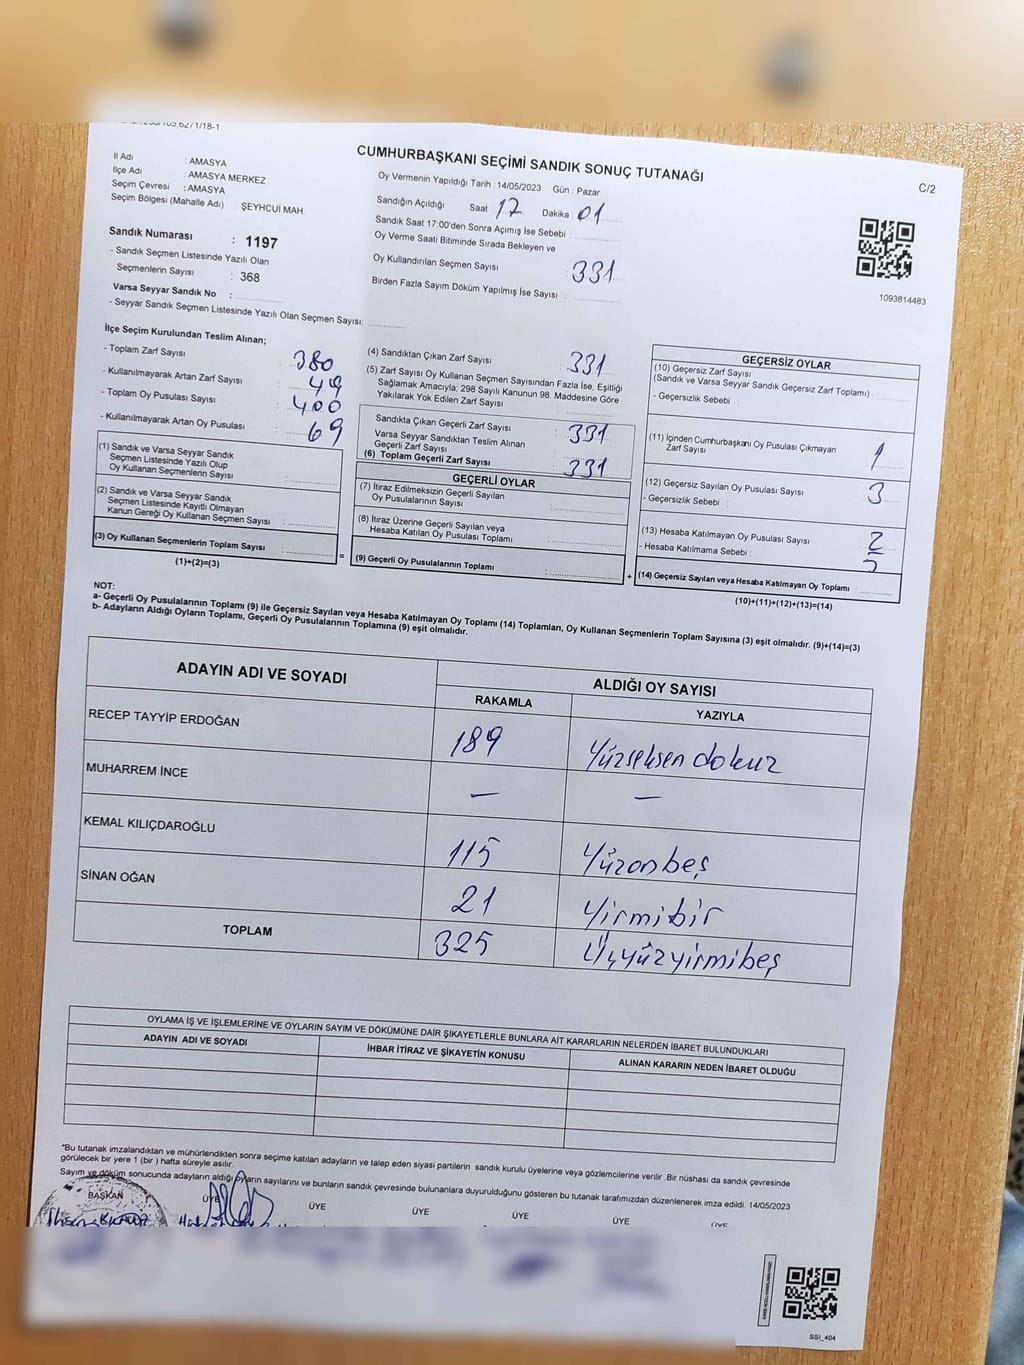 CUMHURBAŞKANI SEÇİMİ SANDIK SONUÇ TUTANAĞI
C/2
İl Adı : AMASYA
İlçe Adı : AMASYA MERKEZ
Seçim Çevresi : AMASYA
Seçim Bölgesi (Mahalle Adı) : ŞEYHCUİ MAH
Sandık Numarası : 1197
- Sandık Seçmen Listesinde Yazılı Olan
Seçmenlerin Sayısı : 368
Varsa Seyyar Sandık No :
- Seyyar Sandık Seçmen Listesinde Yazılı Olan Seçmen Sayısı:
Oy Vermenin Yapıldığı Tarih : 14/05/2023 Gün : Pazar
Sandığın Açıldığı Saat : 17 Dakika : 01
Sandık Saat 17:00'den Sonra Açımış İse Sebebi :
Oy Verme Saati Bitiminde Sırada Bekleyen ve
Oy Kullandırılan Seçmen Sayısı : 331
Birden Fazla Sayım Döküm Yapılmış İse Sayısı :
1093814483
İlçe Seçim Kurulundan Teslim Alınan;
- Toplam Zarf Sayısı : 380
- Kullanılmayarak Artan Zarf Sayısı : 49
- Toplam Oy Pusulası Sayısı : 400
- Kullanılmayarak Artan Oy Pusulası : 69
(1) Sandık ve Varsa Seyyar Sandık
Seçmen Listesinde Yazılı Olup
Oy Kullanan Seçmenlerin Sayısı :
(2) Sandık ve Varsa Seyyar Sandık
Seçmen Listesinde Kayıtlı Olmayan
Kanun Gereği Oy Kullanan Seçmen Sayısı :
(3) Oy Kullanan Seçmenlerin Toplam Sayısı :
(1)+(2)=(3)
(4) Sandıktan Çıkan Zarf Sayısı : 331
(5) Zarf Sayısı Oy Kullanan Seçmen Sayısından Fazla İse, Eşitliği
Sağlamak Amacıyla; 298 Sayılı Kanunun 98. Maddesine Göre
Yakılarak Yok Edilen Zarf Sayısı :
Sandıkta Çıkan Geçerli Zarf Sayısı : 331
Varsa Seyyar Sandıktan Teslim Alınan
Geçerli Zarf Sayısı :
(6) Toplam Geçerli Zarf Sayısı : 331
GEÇERLİ OYLAR
(7) İtiraz Edilmeksizin Geçerli Sayılan
Oy Pusulalarının Sayısı :
(8) İtiraz Üzerine Geçerli Sayılan veya
Hesaba Katılan Oy Pusulası Toplamı :
= (9) Geçerli Oy Pusulalarının Toplamı :
GEÇERSİZ OYLAR
(10) Geçersiz Zarf Sayısı
(Sandık ve Varsa Seyyar Sandık Geçersiz Zarf Toplamı) :
- Geçersizlik Sebebi :
(11) İçinden Cumhurbaşkanı Oy Pusulası Çıkmayan
Zarf Sayısı : 1
(12) Geçersiz Sayılan Oy Pusulası Sayısı : 3
- Geçersizlik Sebebi :
(13) Hesaba Katılmayan Oy Pusulası Sayısı : 2
- Hesaba Katılmama Sebebi :
+ (14) Geçersiz Sayılan veya Hesaba Katılmayan Oy Toplamı :
(10)+(11)+(12)+(13)=(14)
NOT:
a- Geçerli Oy Pusulalarının Toplamı (9) ile Geçersiz Sayılan veya Hesaba Katılmayan Oy Toplamı (14) Toplamları, Oy Kullanan Seçmenlerin Toplam Sayısına (3) eşit olmalıdır. (9)+(14)=(3)
b- Adayların Aldığı Oyların Toplamı, Geçerli Oy Pusulalarının Toplamına (9) eşit olmalıdır.
ADAYIN ADI VE SOYADI ALDIĞI OY SAYISI
RAKAMLA YAZIYLA
RECEP TAYYİP ERDOĞAN 189 Yüzseksen dokuz
MUHARREM İNCE — —
KEMAL KILIÇDAROĞLU 115 Yüzonbeş
SİNAN OĞAN 21 Yirmibir
TOPLAM 325 Üçyüzyirmibeş
OYLAMA İŞ VE İŞLEMLERİNE VE OYLARIN SAYIM VE DÖKÜMÜNE DAİR ŞİKAYETLERLE BUNLARA AİT KARARLARIN NELERDEN İBARET BULUNDUKLARI
ADAYIN ADI VE SOYADI İHBAR İTİRAZ VE ŞİKAYETİN KONUSU ALINAN KARARIN NEDEN İBARET OLDUĞU
*Bu tutanak imzalandıktan ve mühürlendikten sonra seçime katılan adayların ve talep eden siyasi partilerin sandık kurulu üyelerine veya gözlemcilerine verilir .Bir nüshası da sandık çevresinde
görülecek bir yere 1 (bir ) hafta süreyle asılır.
Sayım ve döküm sonucunda adayların aldığı oyların sayılarını ve bunların sandık çevresinde bulunanlara duyurulduğunu gösteren bu tutanak tarafımızdan düzenlenerek imza edildi. 14/05/2023
BAŞKAN ÜYE ÜYE ÜYE ÜYE ÜYE ÜYE
SSİ_404